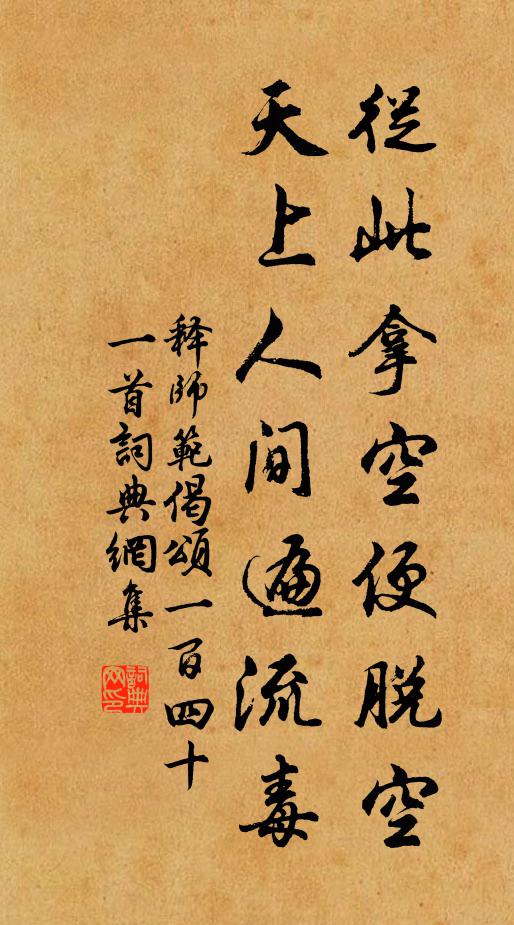 從此拿空便脫空
天上人間遍流毒
释師範偈頌一百四十
一首詞典網集
詞典網印